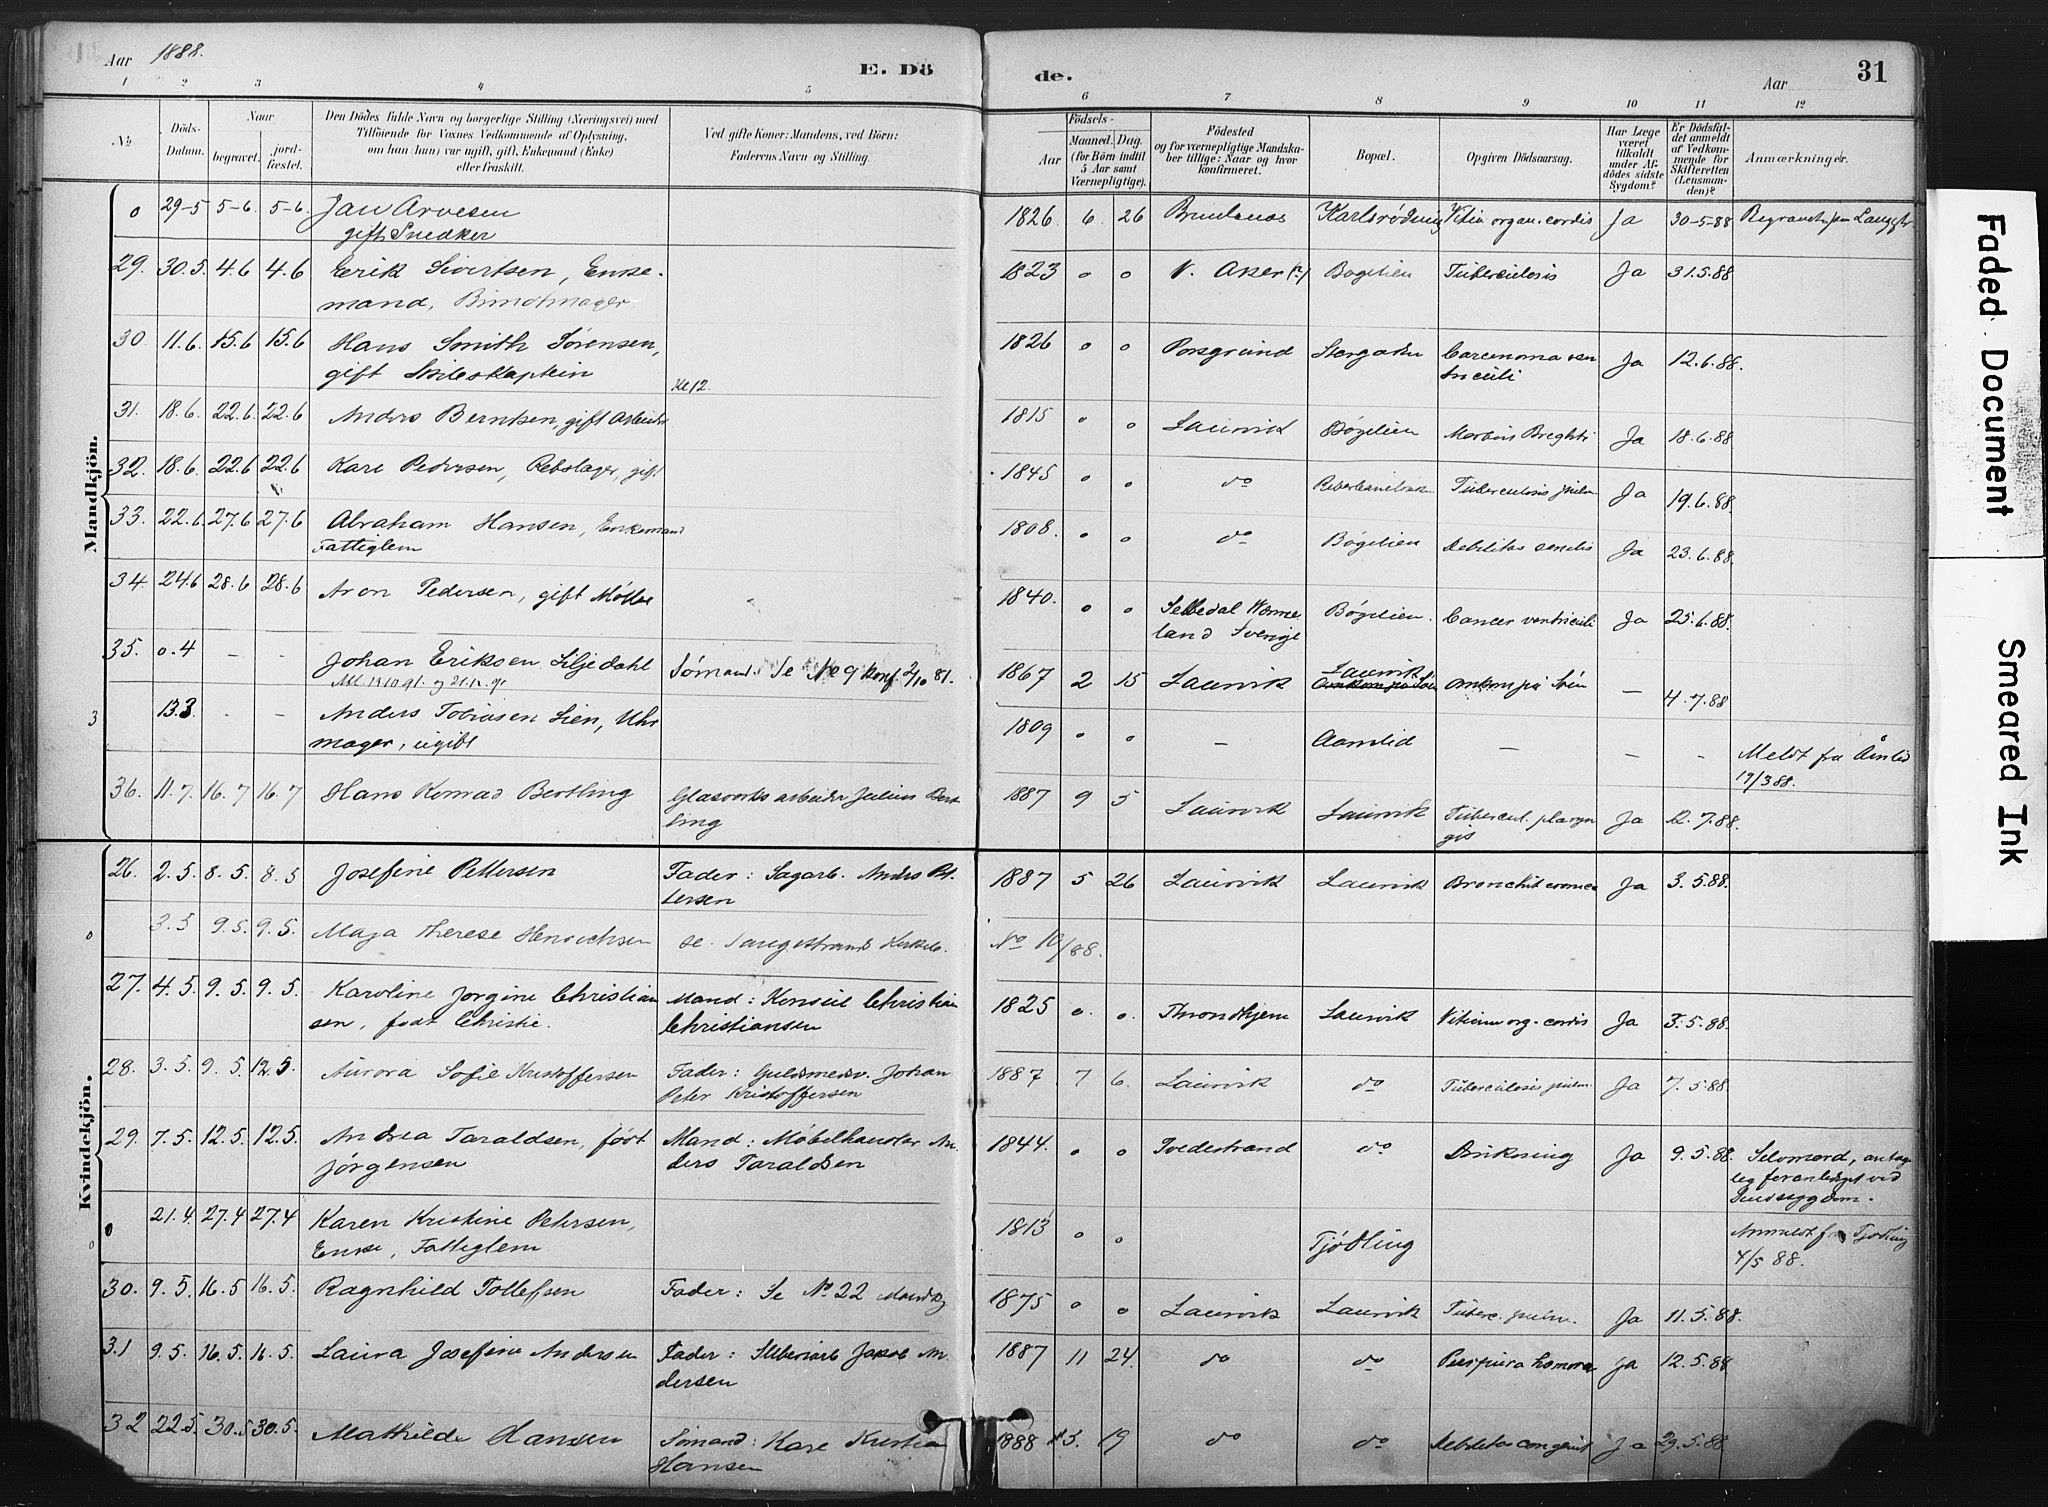 Aar 1888.
E. Dö
de.
Aar
31
1 2 3 4 5 6 7 8 9 10 11 12
No
Döds-
Datum.
Naar
begravet.
jord-
fæstet.
Den Dödes fulde Navn og borgerlige Stilling (Næringsvei) med
Tilföiende for Voxnes Vedkommende af Oplysning,
om han (hun) var ugift, gift, Enkemand (Enke)
eller fraskilt.
Ved gifte Koner: Mandens, ved Börn:
Faderens Navn og Stilling.
Födsels-
Aar
Maaned. Dag.
(for Börn indtil
5 Aar samt
Værnepligtige).
Födested
og for værnepligtige Mandska-
ber tillige: Naar og hvor
konfirmeret.
Bopæl.
Opgiven Dödsaarsag.
Har Læge
været
tilkaldt
under Af-
dödes sidste
Sygdom?
Er Dödsfal-
det anmeldt
af Vedkom-
mende for
Skifteretten
(Lensman-
den)?
Anmærkninger.
Mandkjön.
0 29-5 5-6. 5-6. Jan Arvesen 1826 6. 26 Brunlanæs Vitia organ. cordis Ja 30-5-88
gift Snedker
29. 30.5. 4.6 4.6 Erik Sivertsen, Enke- 1823 0 0 V. Aker (?) Bøgelien Tuberculosis Ja 31.5.88
mand, Bundtmager
30. 11.6. 15.6 15.6 Hans Smith Sørensen, 1826 0 0 Porsgrund Carcinoma ven Ja 12.6.88.
gift Skibskaptein Kl 12. triculi
31. 18.6. 22.6. 22.6 Anders Berntsen, gift Arbeider 1815 0 0 Laurvik Bøgelien Morbus Brightii Ja 18.6.88
32. 18.6. 22.6 22.6 Karl Pedersen, Rebslager, gift 1845 0 0 do Tuberculosis pulm Ja 19.6.88.
33. 22.6. 27.6 27.6 Abraham Hansen, Enkemand 1808. 0 0 do Bøgelien Debilitas senilis Ja 23.6.88.
Fattiglem
34. 24.6 28.6 28.6 Aron Pedersen, gift Møller 1840. 0 0 Bøgelien. Cancer ventriculi Ja 25.6.88.
land Sverige
35. 0.4 - - Johan Eriksen Liljedahl Sømand. Se No 9 Konf. 2/10 81. 1867 2 15 Laurvik Laurvik omkom paa Søen - 4.7.88
3 13.3 - - Anders Tobiasen Lien, Uhr 1809 0 0 - Aamlid - - - Meldt fra Åmlid
mager, ugift 17/3 88.
36. 11.7. 16.7 16.7 Hans Konrad Bertling Glasverksarbeider Julius Bert 1887 9 5 Laurvik Laurvik Tubercul. pharyn Ja 12.7.88.
ling gis
Kvindekjön.
26. 2.5. 8.5. 8.5 Josefine Pettersen Fader: Sagarb. Anders Pet- 1887 5 26 Laurvik Laurvik Ja 3.5.88.
tersen
0 3.5 9.5. 9.5. Maja Therese Henrichsen se. Langestrands Kirkeb. No 10/88.
27. 4.5. 9.5. 9.5. Karoline Jørgine Christian Mand: Konsul Christian 1825 0. 0. Throndhjem Laurvik Vitium org. cordis Ja 5.5.88.
sen, født Christie. Christiansen
28. 3.5. 9.5. 12.5. Aurora Sofie Kristoffersen Fader: Guldsmedsv. Johan 1887. 7 6. Laurvik do Tuberculosis pulm. Ja 7.5.88
Peter Kristoffersen
29. 7.5. 12.5. 12.5. Andrea Taraldsen, født Mand: Møbelhandler An- 1844. 0 0 Tvedestrand do Drukning Ja 9.5.88. Selvmord, antage
Jørgensen ders Taraldsen lig foranlediget ved
Sindssygdom.
0 21.4. 27.4 27.4 Karen Kristine Petersen, 1813 0 0 Tjødling Anmeldt fra Tjødling
Enke, Fattiglem 4/5 88.
30. 9.5. 16.5 16.5. Ragnhild Tollefsen Fader: Se No 22 Mandkj 1875 0 0 Laurvik Laurvik Tuberc. pulm. Ja 11.5.88.
31 9.5. 16.5. 16.5. Laura Josefine Andersen Fader: Jakob An- 1887 11 24. do do Purpura hæmorr Ja 12.5.88
dersen
32 22.5. 30.5 30.5. Mathilde Hansen Sømand: Karl Kristian 1888 5. 19 do do Debilitas congenit Ja 29.5.88.
Hansen
Faded Document
Smeared Ink